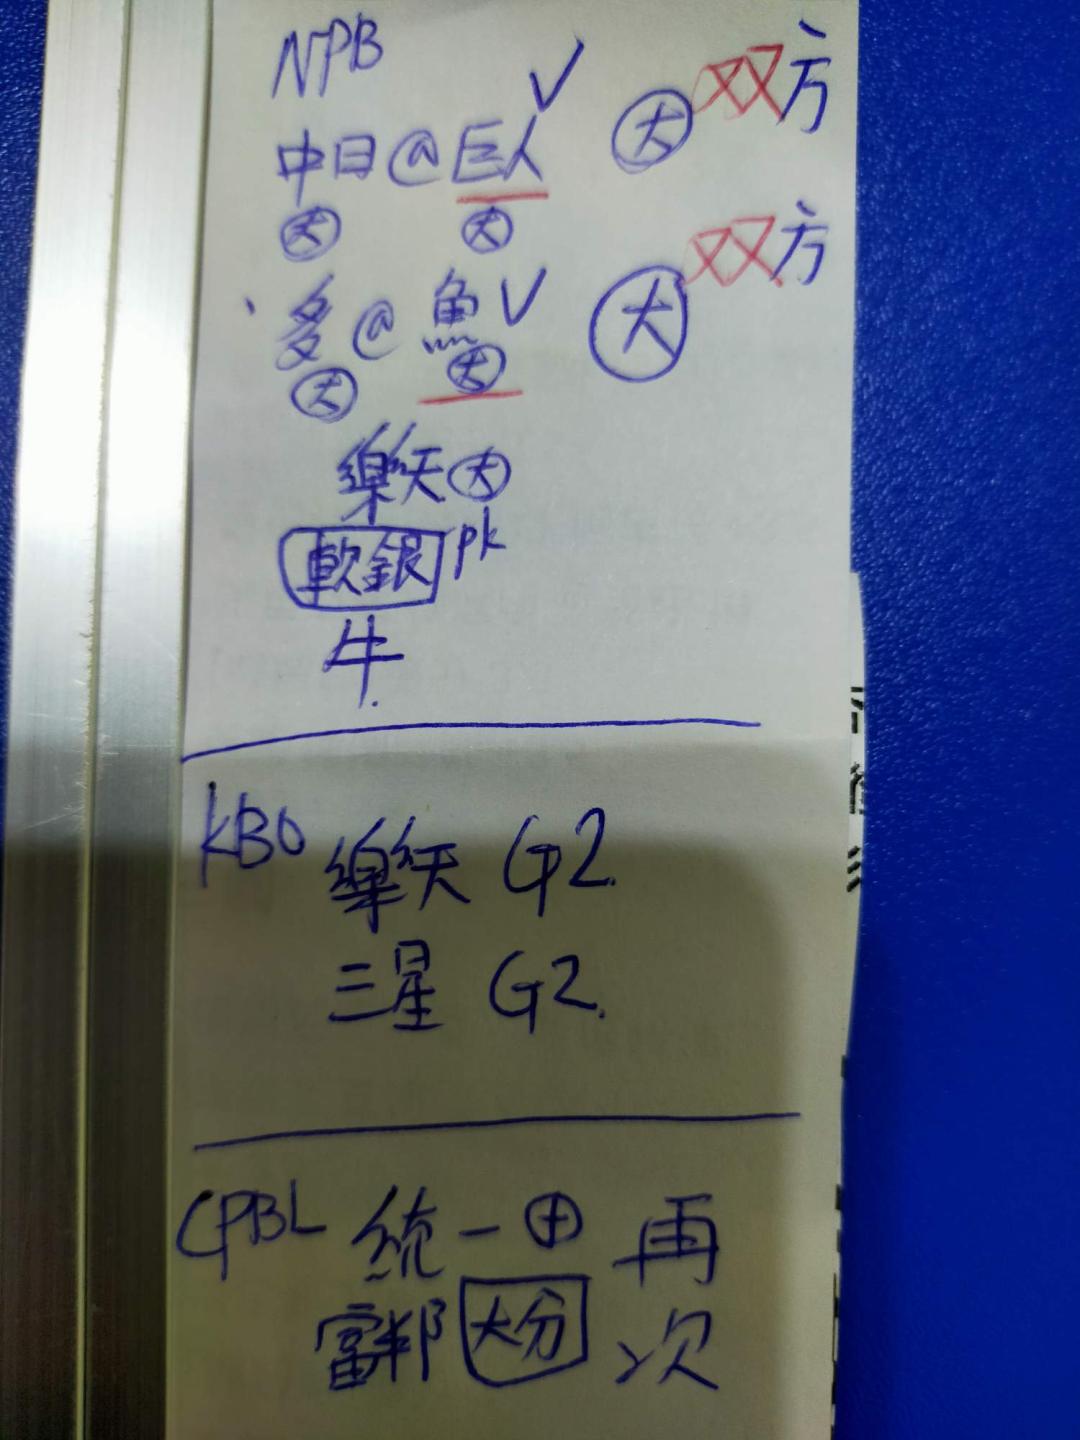 NPB
双方
中日@巨人 大
大 大
双方
多@魚 大
大 大
樂天 大
軟銀 pk
牛
KBO 樂天 G2.
三星 G2.
CPBL 統一 再
富邦 大分 次